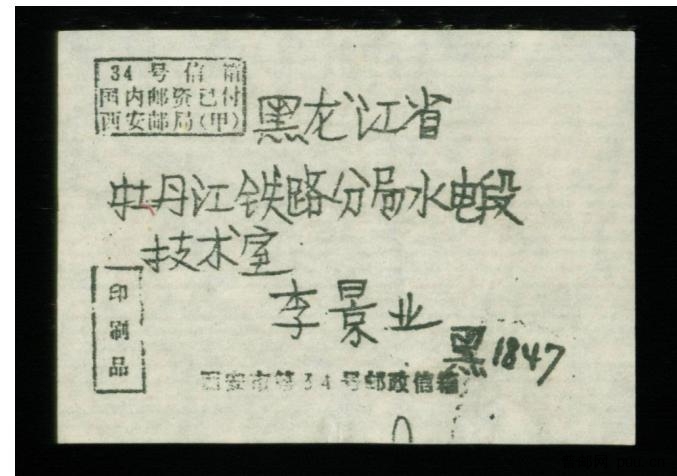 34 号信箱
国内邮资已付
西安邮局(甲)
黑龙江省
牡丹江铁路分局水电段
技术室
李景业
印刷品
黑1847
西安市第34号邮政信箱